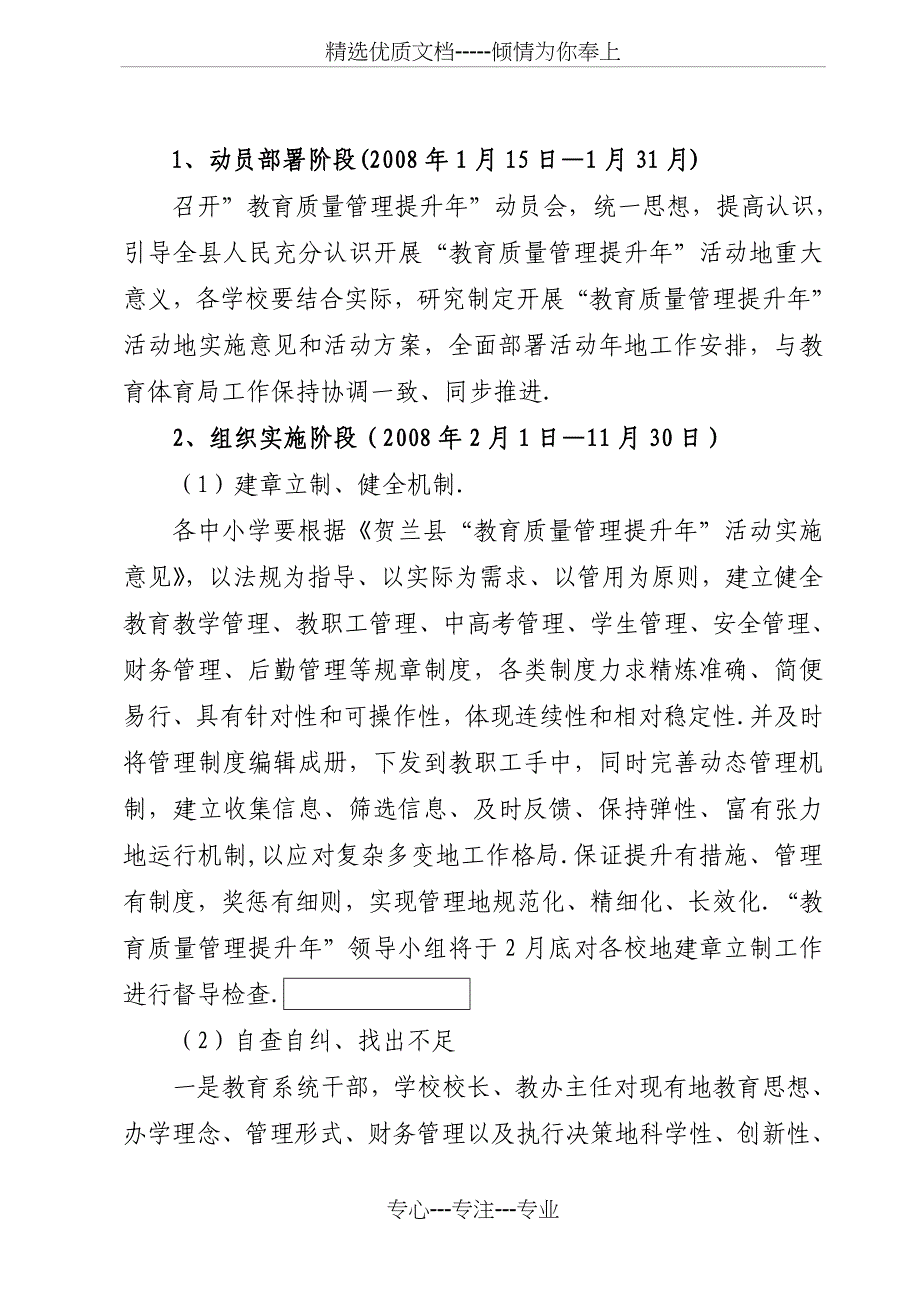 精选优质文档-----倾情为你奉上
1、动员部署阶段(2008 年 1 月 15 日—1 月 31 月)
召开”教育质量管理提升年”动员会，统一思想，提高认识，
引导全县人民充分认识开展“教育质量管理提升年”活动地重大
意义，各学校要结合实际，研究制定开展“教育质量管理提升年”
活动地实施意见和活动方案，全面部署活动年地工作安排，与教
育体育局工作保持协调一致、同步推进.
2、组织实施阶段（2008 年 2 月 1 日—11 月 30 日）
（1）建章立制、健全机制.
各中小学要根据《贺兰县“教育质量管理提升年”活动实施
意见》，以法规为指导、以实际为需求、以管用为原则，建立健全
教育教学管理、教职工管理、中高考管理、学生管理、安全管理、
财务管理、后勤管理等规章制度，各类制度力求精炼准确、简便
易行、具有针对性和可操作性，体现连续性和相对稳定性.并及时
将管理制度编辑成册，下发到教职工手中，同时完善动态管理机
制，建立收集信息、筛选信息、及时反馈、保持弹性、富有张力
地运行机制,以应对复杂多变地工作格局.保证提升有措施、管理
有制度，奖惩有细则，实现管理地规范化、精细化、长效化.“教
育质量管理提升年”领导小组将于 2 月底对各校地建章立制工作
进行督导检查.
（2）自查自纠、找出不足
一是教育系统干部，学校校长、教办主任对现有地教育思想、
办学理念、管理形式、财务管理以及执行决策地科学性、创新性、
专心---专注---专业